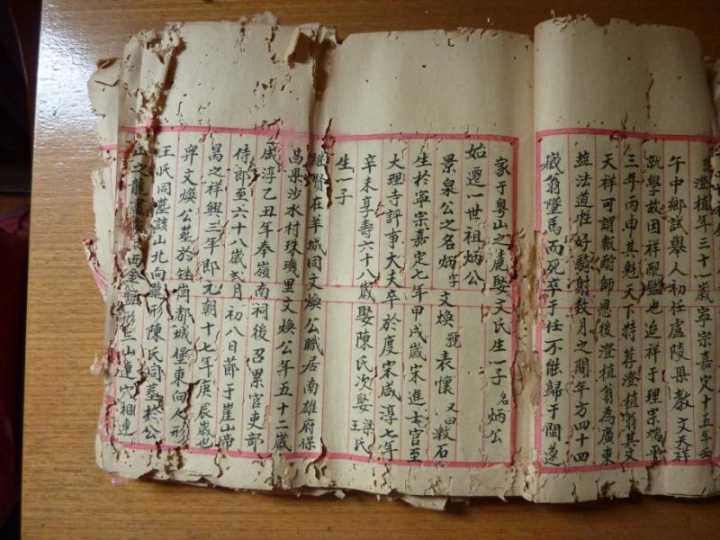 澄植年三十一歲寧宗嘉定十五年壬
午中鄉試舉人初任廬陵縣教文天祥
學故因祥也迨祥于理宗端平
三年丙申其魁天下特荐澄植翁其文
天祥可謂報酧師恩後澄植翁為廣東
法道性好騎射数月之間年方四十四
歲翁墜馬而死卒于任不能歸于閩遂
家于粵山之麓娶文氏生一子名炳公
始遷一世祖炳公
景泉公之名炳字文煥號表懷又曰漱石
生於寧宗嘉定七年甲戌歲宋進士官至
大理寺評事大夫卒於度宋咸淳七年
辛未享壽六十八歲娶陳氏次娶洪氏王氏
生一子
賢在羊城同文煥公賦居南雄府保
昌縣沙水村珠璣里文煥公年五十二歲
咸淳乙丑年奉嶺南祠後召累官吏部
侍郎至六十八歲弍月初八日節于崖山帶
昺之祥興三年即元朝十七年庚辰歲也
葬文煥公墓於崗都城堡東向人形
王氏同墓該山北向龍形陳氏同墓於公
山之龍西金盤形三山連穴相連